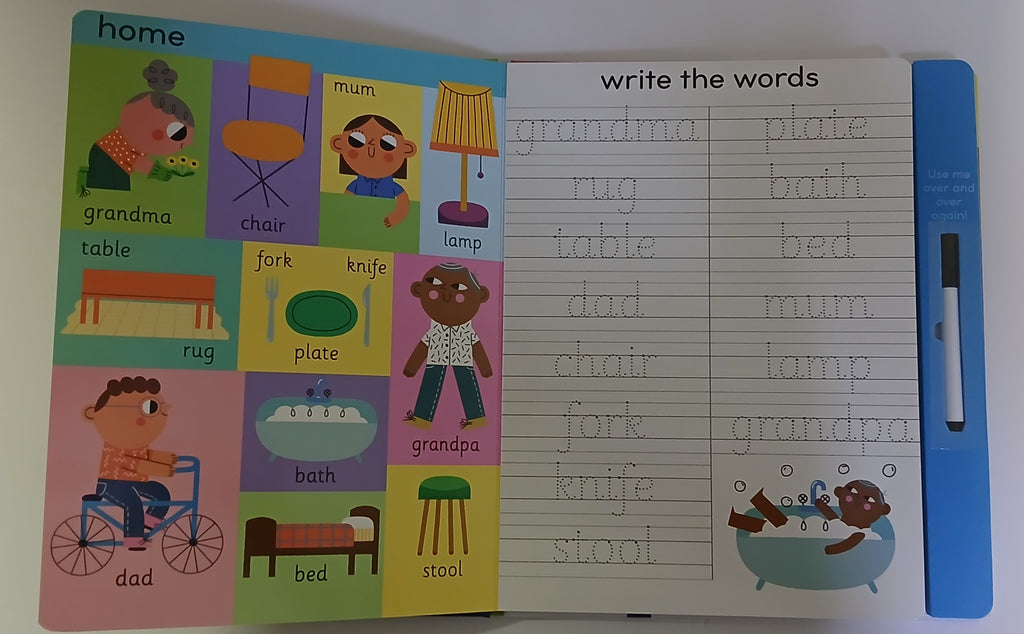 home
grandma
chair
mum
lamp
table
rug
fork
knife
plate
grandpa
dad
bath
bed
stool
write the words
grandma
rug
table
dad
chair
fork
knife
stool
plate
bath
bed
mum
lamp
grandpa
Use me
over and
over
again!